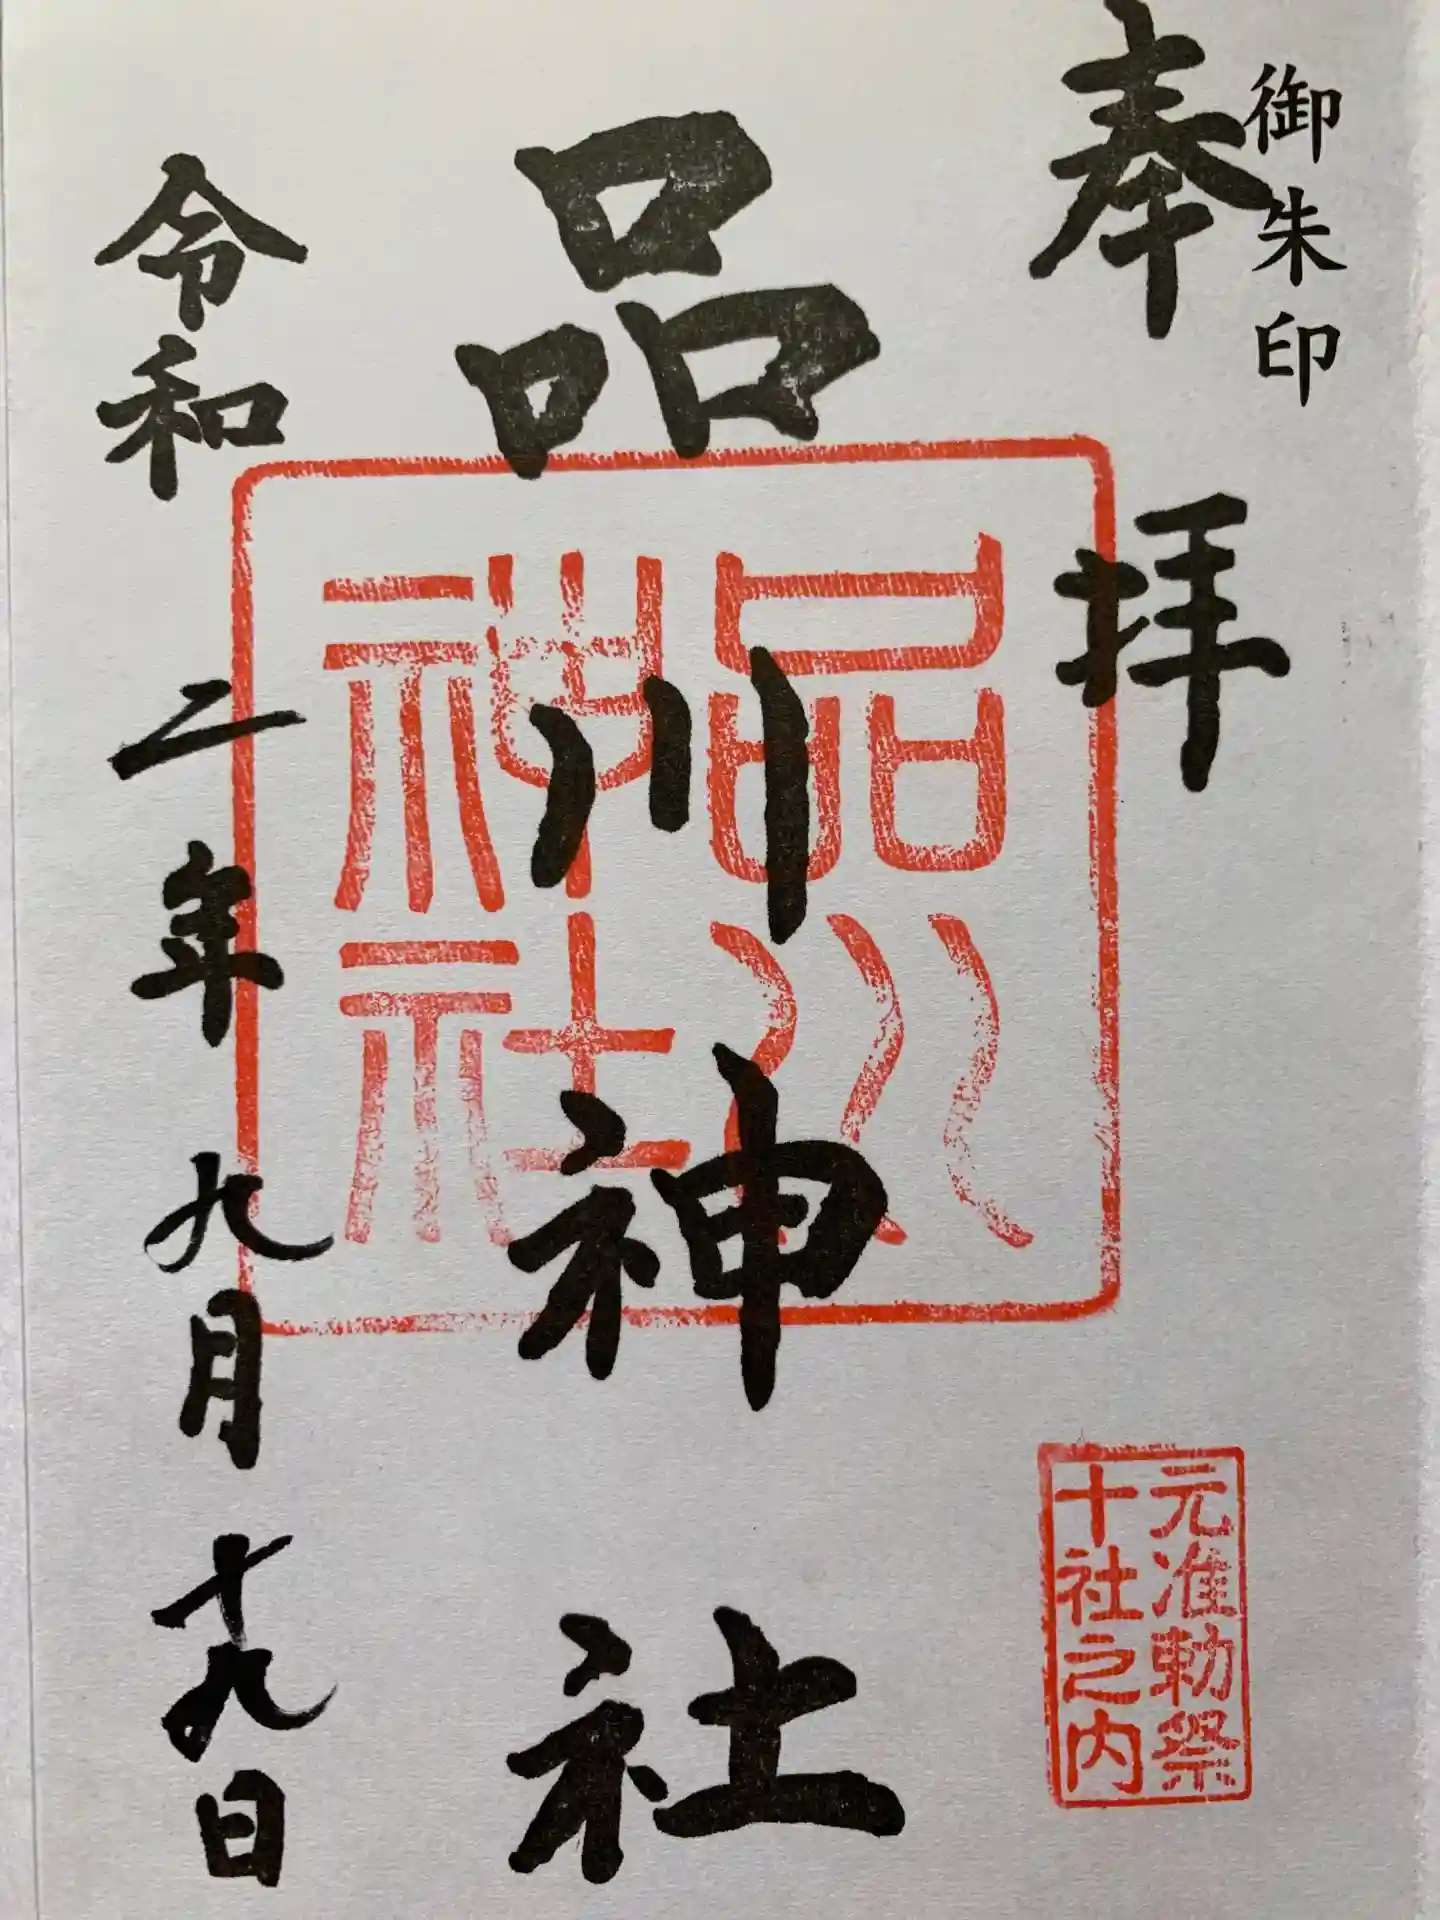 御朱印
奉拝
品川神社
品川
神社
元准勅祭
十社之内
令和二年九月十九日